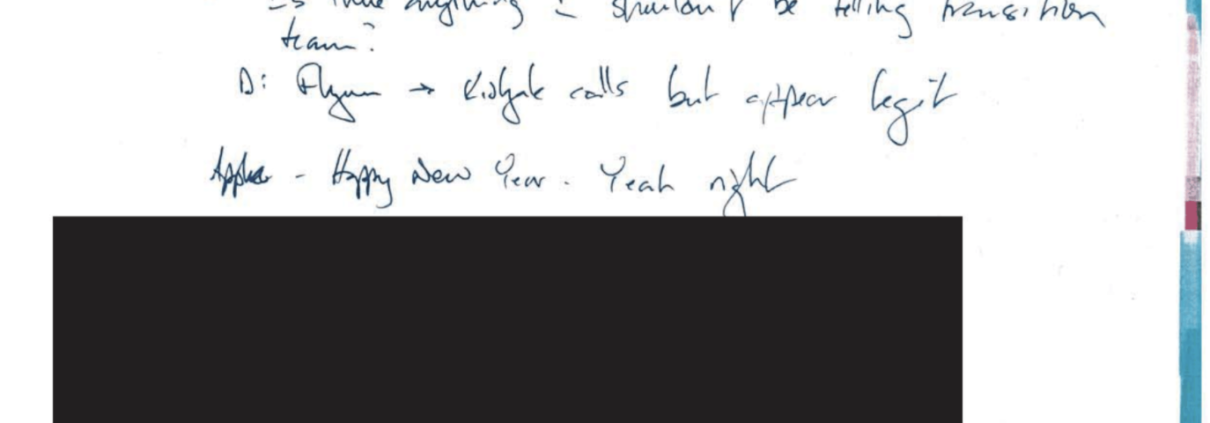 Is there anything I shouldn't be telling transition
team?
D: Flynn → Kislyak calls but appear legit
- Happy New Year. Yeah right